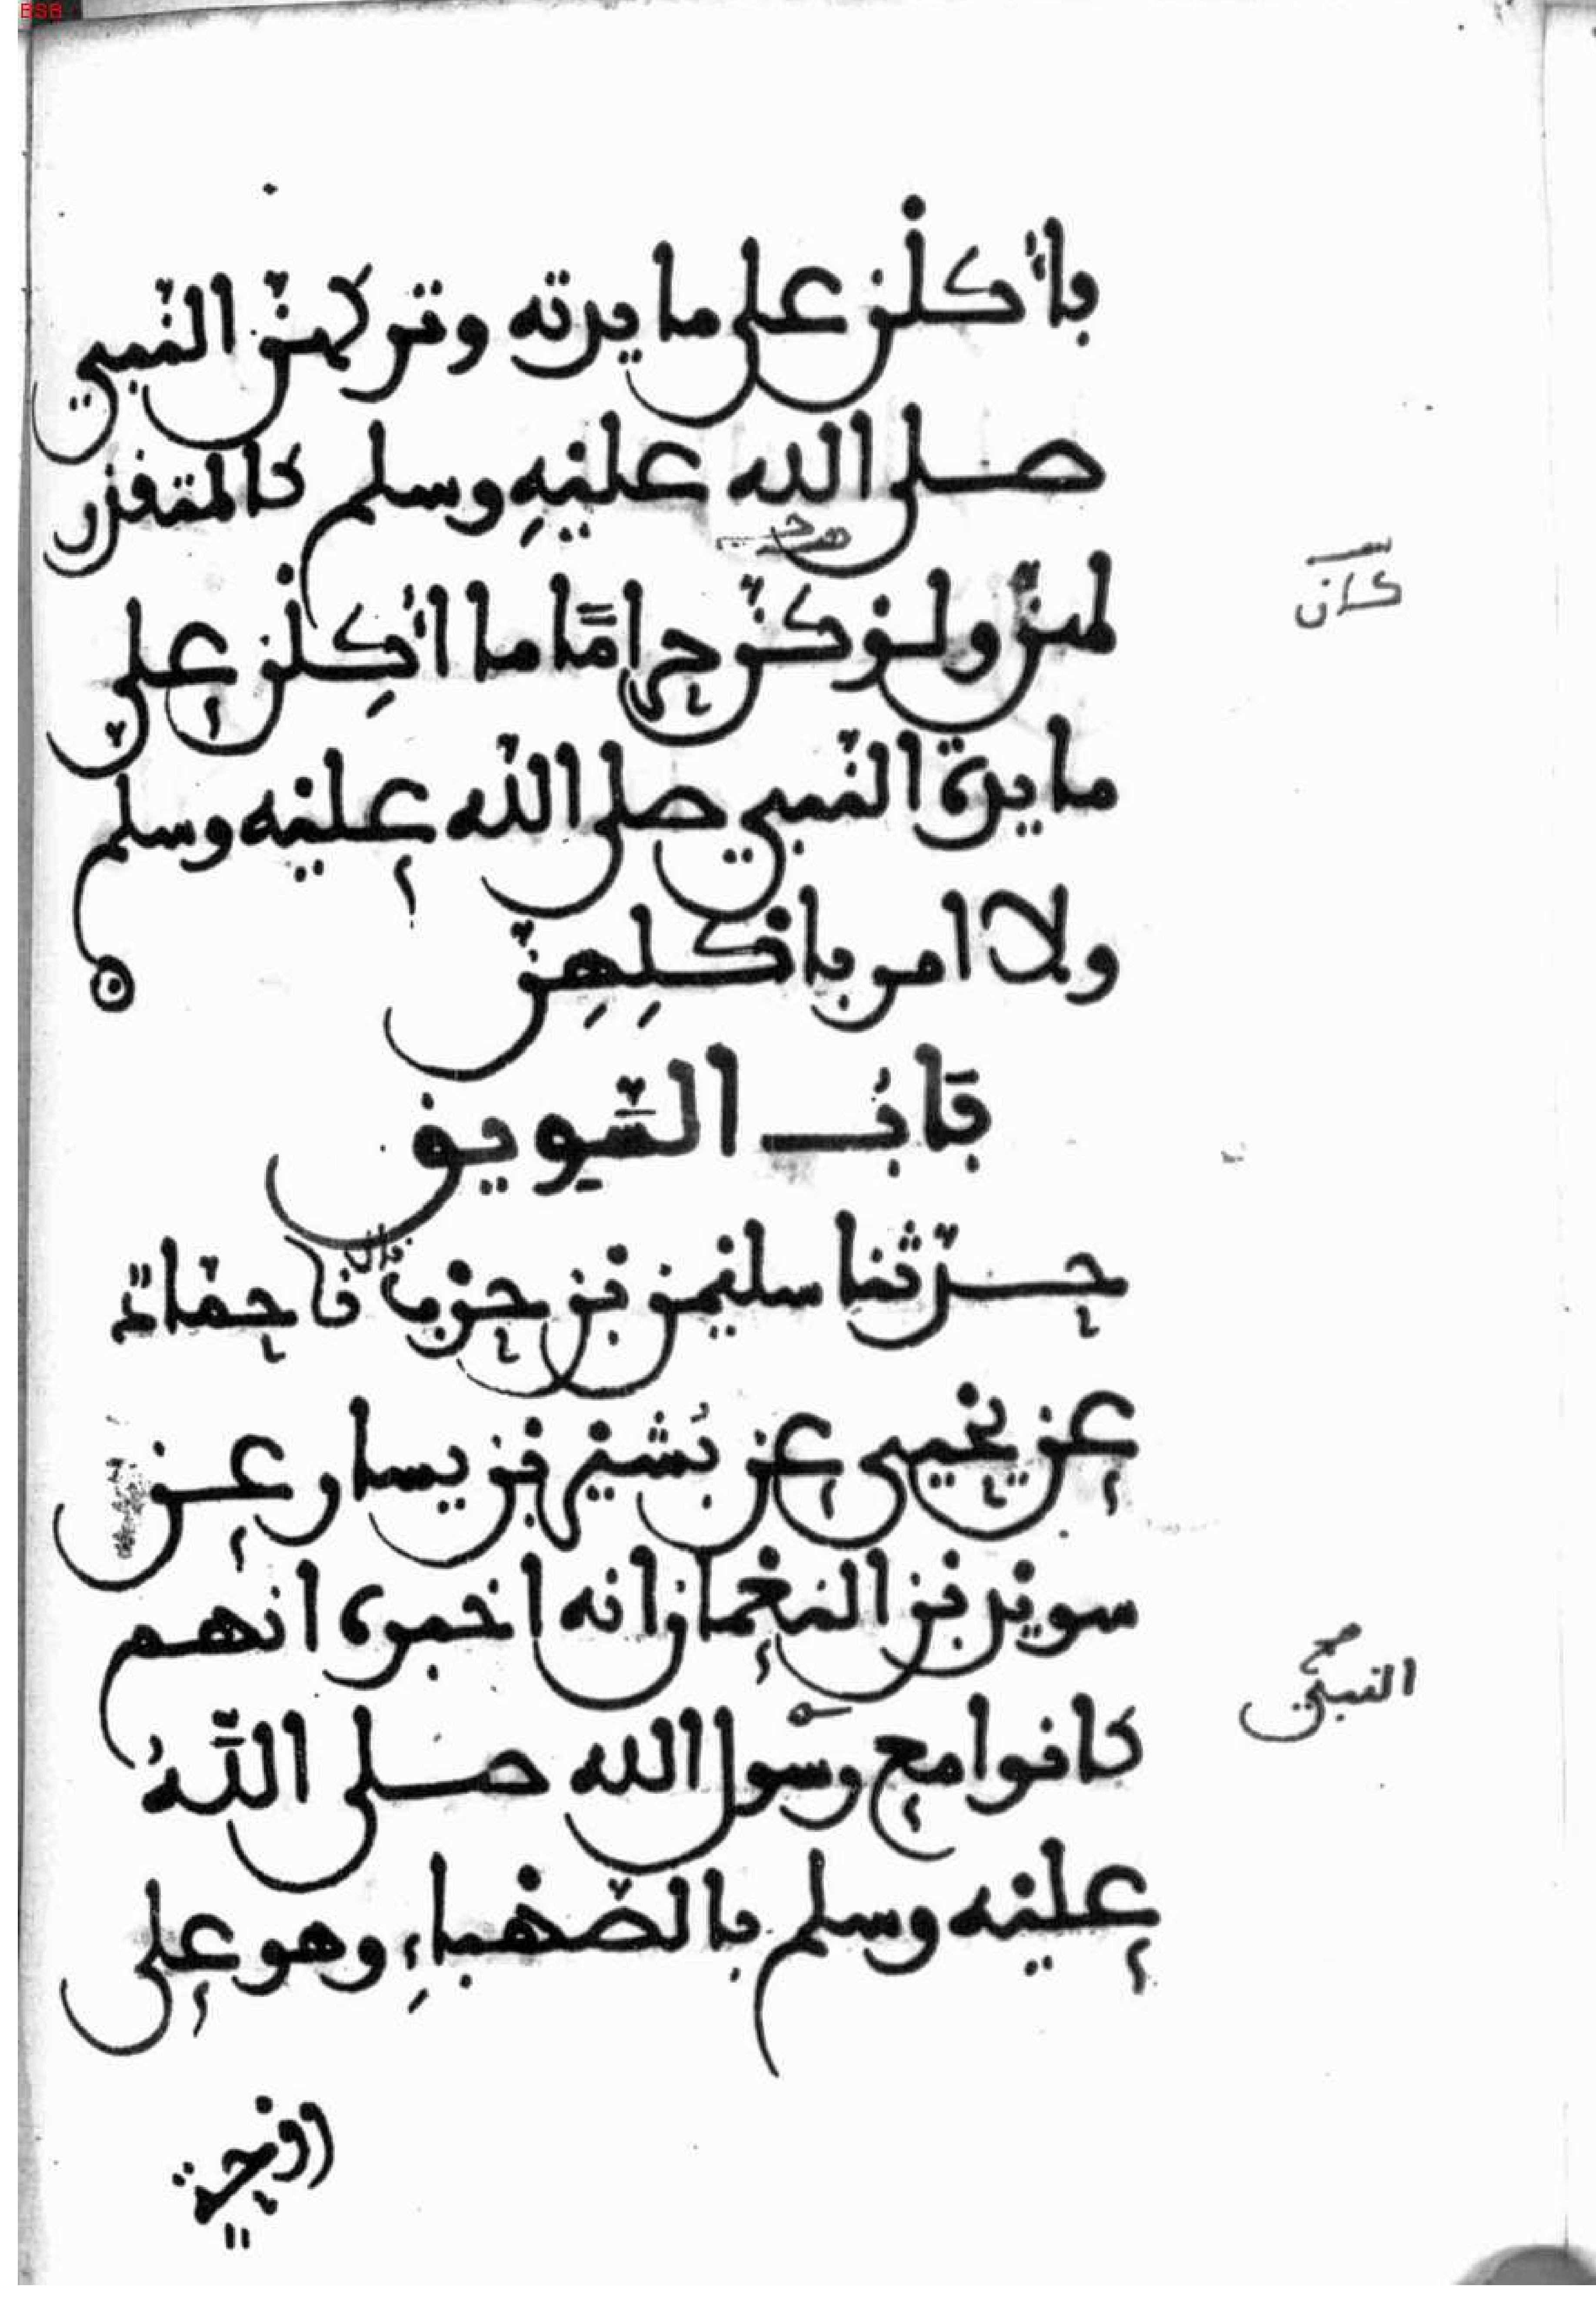 BSB
فأُكلن على مايدته وتركهنّ النّبي
صلى الله عليهِ وسلم كالمتقذر
لهنّ ولو كنّ حرامًا ما أُكِلن على
كان
مايدة النّبي صلى اللّه عليه وسلم
ولا امر باكلِهِنّ
بَابُ السَّوِيق
حدّثنا سليمن بن حرب قال نا حمّادٌ
عن يحيى عن بُشير بن يسار عن
سويد بن النعمان انه اخبره انهم
كانوا مع رسول الله صلى اللَّهُ
النبي
صح
عليه وسلم بالصّهباءِ وهو على
روحة